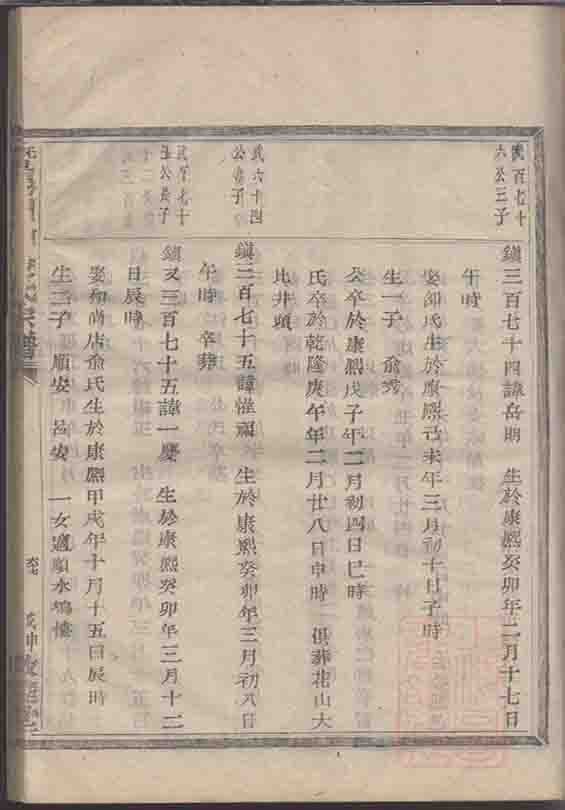 武百七十
六公三子
鎮三百七十四諱岳明 生於康熙癸卯年二月十七日
午時
娶邵氏生於康熙己未年三月初十日子時
生一子 俞秀
公卒於康熙戊子年二月初四日巳時
氏卒於乾隆庚午年二月廿八日申時 俱葬花山大
北井頭
武六十四
公 子
鎮三百七十五諱惟 生於康熙癸卯年三月初八日
午時 卒葬
武百七十
公長子
鎮又三百七十五諱一慶 生於康熙癸卯年三月十二
日辰時
娶和尚店俞氏生於康熙甲戌年十月十五日辰時
生二子 順安 呂安 一女適順水塢樓
氏宗譜
戊申